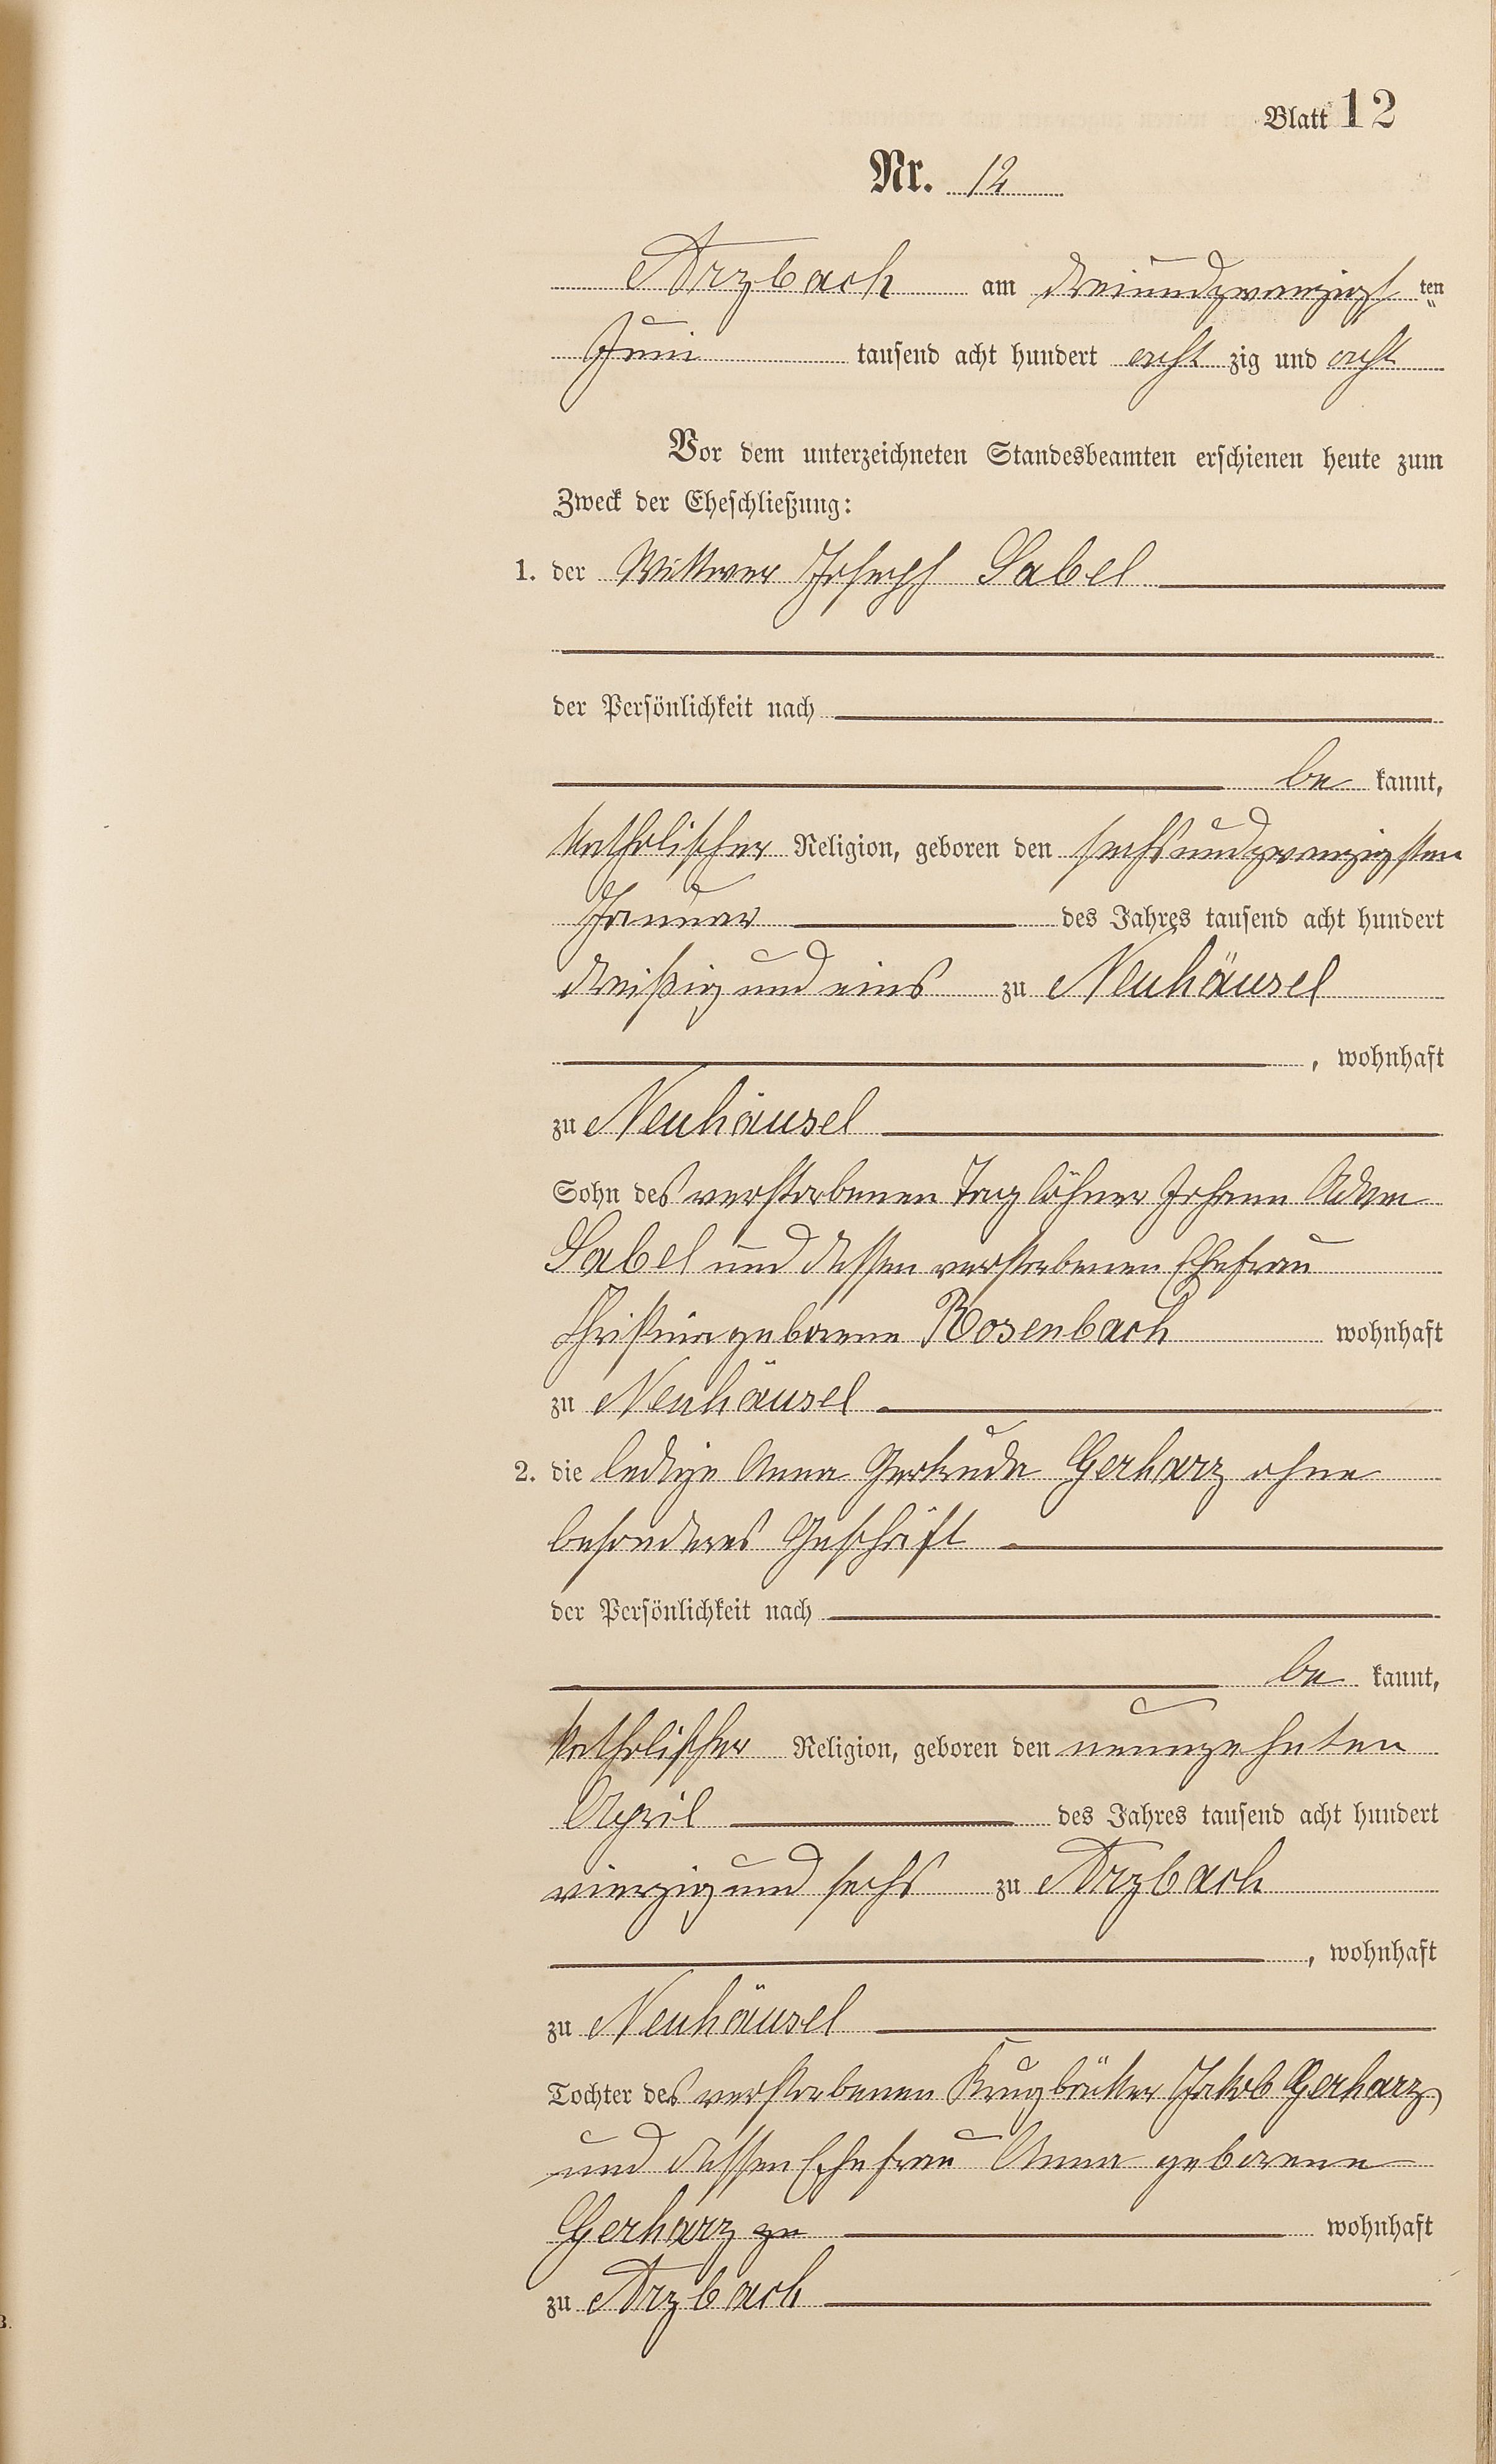 Blatt 12
Nr. 12
Arzbach am dreiundzwanzigst ten
Juni tausend acht hundert acht zig und acht
Vor dem unterzeichneten Standesbeamten erschienen heute zum
Zweck der Eheschließung:
1. der Wittwer Joseph Sabel
der Persönlichkeit nach
be kannt,
katholischer Religion, geboren den sechsundzwanzigsten
Januar des Jahres tausend acht hundert
dreißig und eins zu Neuhäusel
, wohnhaft
zu Neuhäusel
Sohn des verstorbenen Taglöhner Johann Adam
Sabel und dessen verstorbenen Ehefrau
Christina geborene Rosenbach wohnhaft
zu Neuhäusel
2. die ledige Anna Gertruda Gerharz ohne
besonderes Geschäft
der Persönlichkeit nach
be kannt,
katholischer Religion, geboren den neunzehnten
April des Jahres tausend acht hundert
vierzig und sechs zu Arzbach
, wohnhaft
zu Neuhäusel
Tochter des verstorbenen Krugbäcker Jakob Gerharz
und dessen Ehefrau Anna geborene
Gerharz zu wohnhaft
zu Arzbach